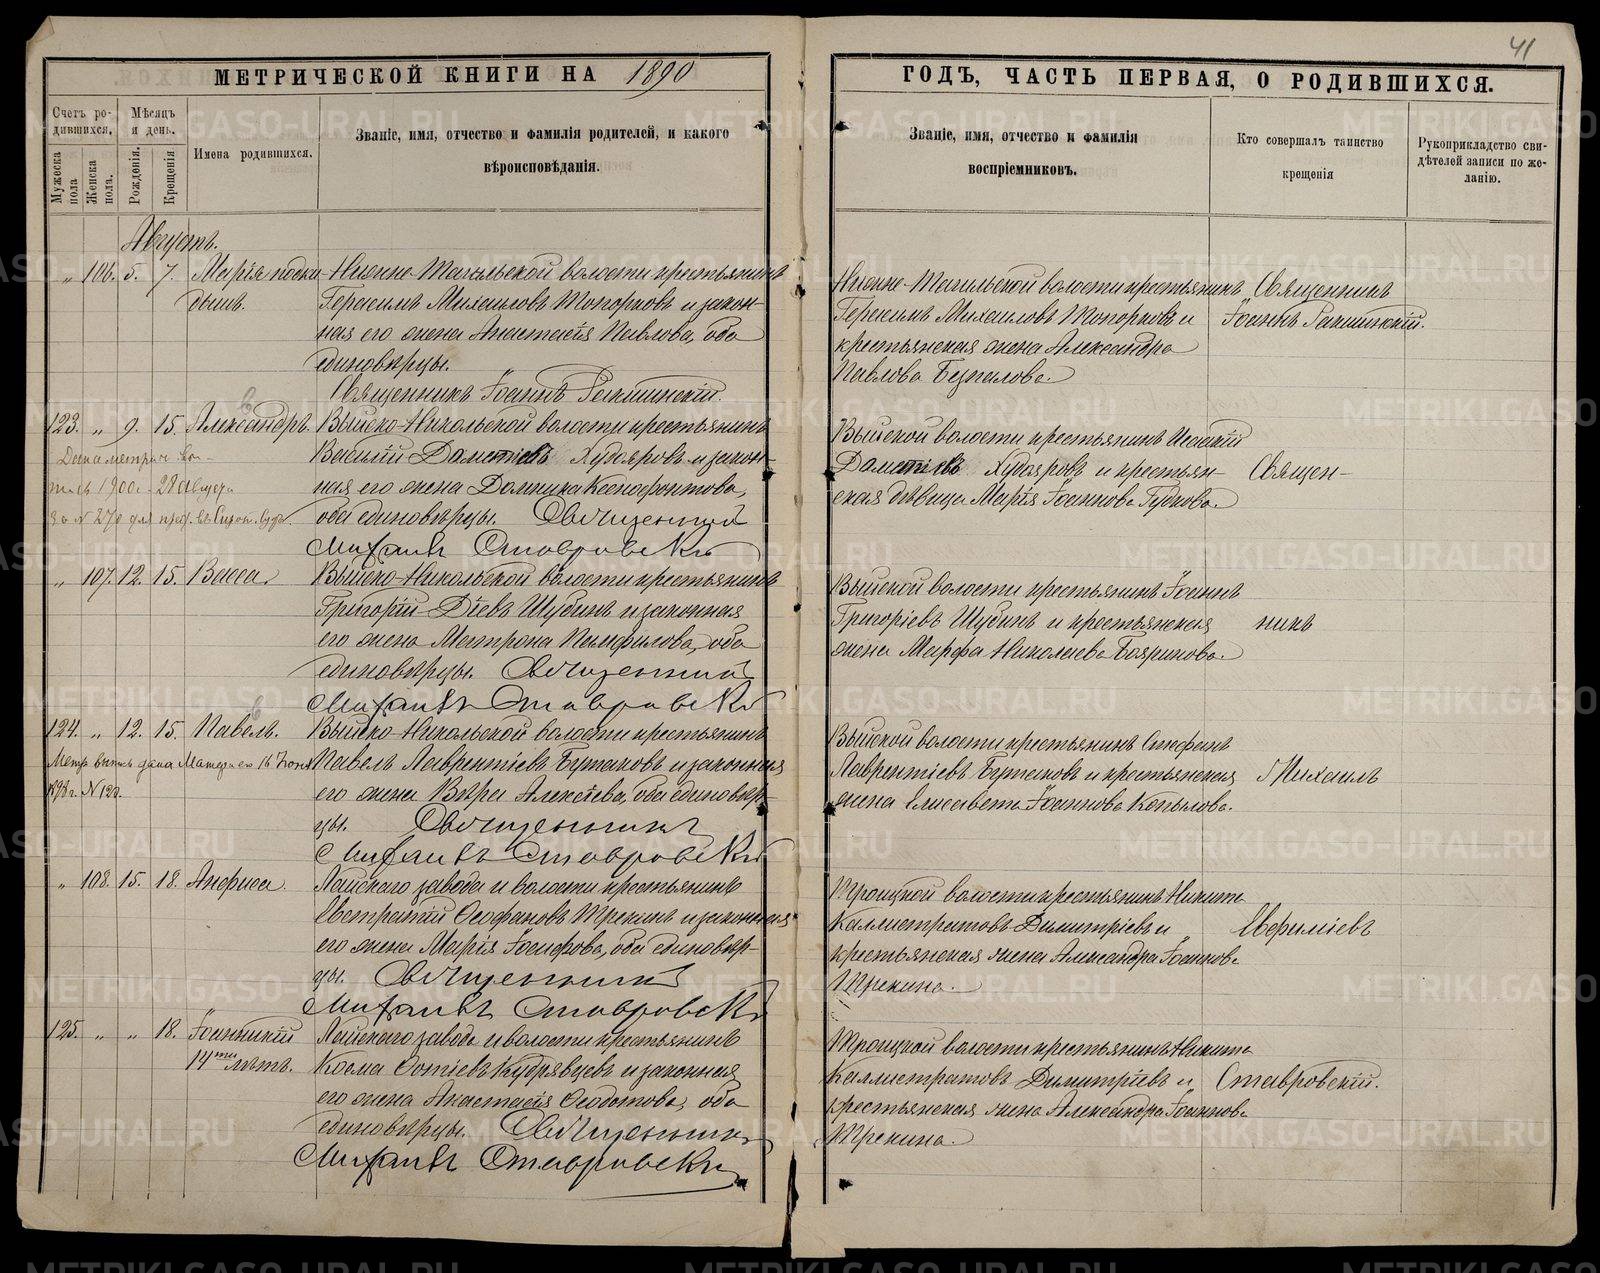 41
МЕТРИЧЕСКОЙ КНИГИ НА 1890
ГОДЪ, ЧАСТЬ ПЕРВАЯ, О РОДИВШИХСЯ.
Счетъ ро-
дившихся.
Мѣсяцъ
и день.
Мужеска
пола
Женска
пола.
Рожденія.
Крещенія
Имена родившихся.
Званіе, имя, отчество и фамилія родителей, и какого
вѣроисповѣданія.
Званіе, имя, отчество и фамилія
воспріемниковъ.
Кто совершалъ таинство
крещенія
Рукоприкладство сви-
дѣтелей записи по же-
ланію.
Августъ.
„ 106. 5. 7. Марія
дышъ.
Нижне-Тагильской волости крестьянинъ
Герасимъ Михаиловъ Топорковъ и закон-
ная его жена Анастасія Павлова, оба
единовѣрцы.
Священникъ Іоаннъ
Нижне-Тагильской волости крестьянинъ
Герасимъ Михаиловъ Топорковъ и
крестьянская жена Александра
Павлова Безпалова.
Священникъ
Іоаннъ
123. „ 9. 15. Александръ.
1900 г. 28 Августа
за № 270
Выйско-Никольской волости крестьянинъ
Василій Дометіевъ Худояровъ и закон-
ная его жена Домника Ксенофонтова,
оба единовѣрцы. Священникъ
Михаилъ Ставровскій
Выйской волости крестьянинъ
Дометіевъ Худояровъ и крестьян-
ская дѣвица Марія Іоаннова Гудкова.
Священ-
„ 107. 12. 15. Васса.
Выйско-Никольской волости крестьянинъ
Григорій Діевъ Шубинъ и законная
его жена Матрона Памфилова, оба
единовѣрцы. Священникъ
Михаилъ Ставровскій
Выйской волости крестьянинъ Іоаннъ
Григоріевъ Шубинъ и крестьянская
жена Марфа Николаева Бояринова.
никъ
124. „ 12. 15. Павелъ.
Метр. выпись дана Матери его 16 Іюня
№ 122.
Выйско-Никольской волости крестьянинъ
Павелъ Лаврентіевъ Бутаковъ и законная
его жена Вѣра Алексѣева, оба единовѣр-
цы. Священникъ
Михаилъ Ставровскій
Выйской волости крестьянинъ Стефанъ
Лаврентіевъ Бутаковъ и крестьянская
жена Елисавета Іоаннова Копылова.
Михаилъ
„ 108. 15. 18. Анфиса.
Лайскаго завода и волости крестьянинъ
Евстратій Ѳеофановъ Трекинъ и законная
его жена Марія Іосифова, оба единовѣр-
цы. Священникъ
Михаилъ Ставровскій
Троицкой волости крестьянинъ Никита
Каллистратовъ Димитріевъ и
крестьянская жена Александра Іоаннова
Трекина.
Евфиміевъ
125. „ „ 18. Іоанникій
14ти лѣтъ.
Лайскаго завода и волости крестьянинъ
Косма Фотіевъ Кудрявцевъ и законная
его жена Анастасія Ѳеодотова, оба
единовѣрцы. Священникъ
Михаилъ Ставровскій
Троицкой волости крестьянинъ Никита
Каллистратовъ Димитріевъ и
крестьянская жена Александра Іоаннова
Трекина.
Ставровскій.
METRIKI.GASO-URAL.RU